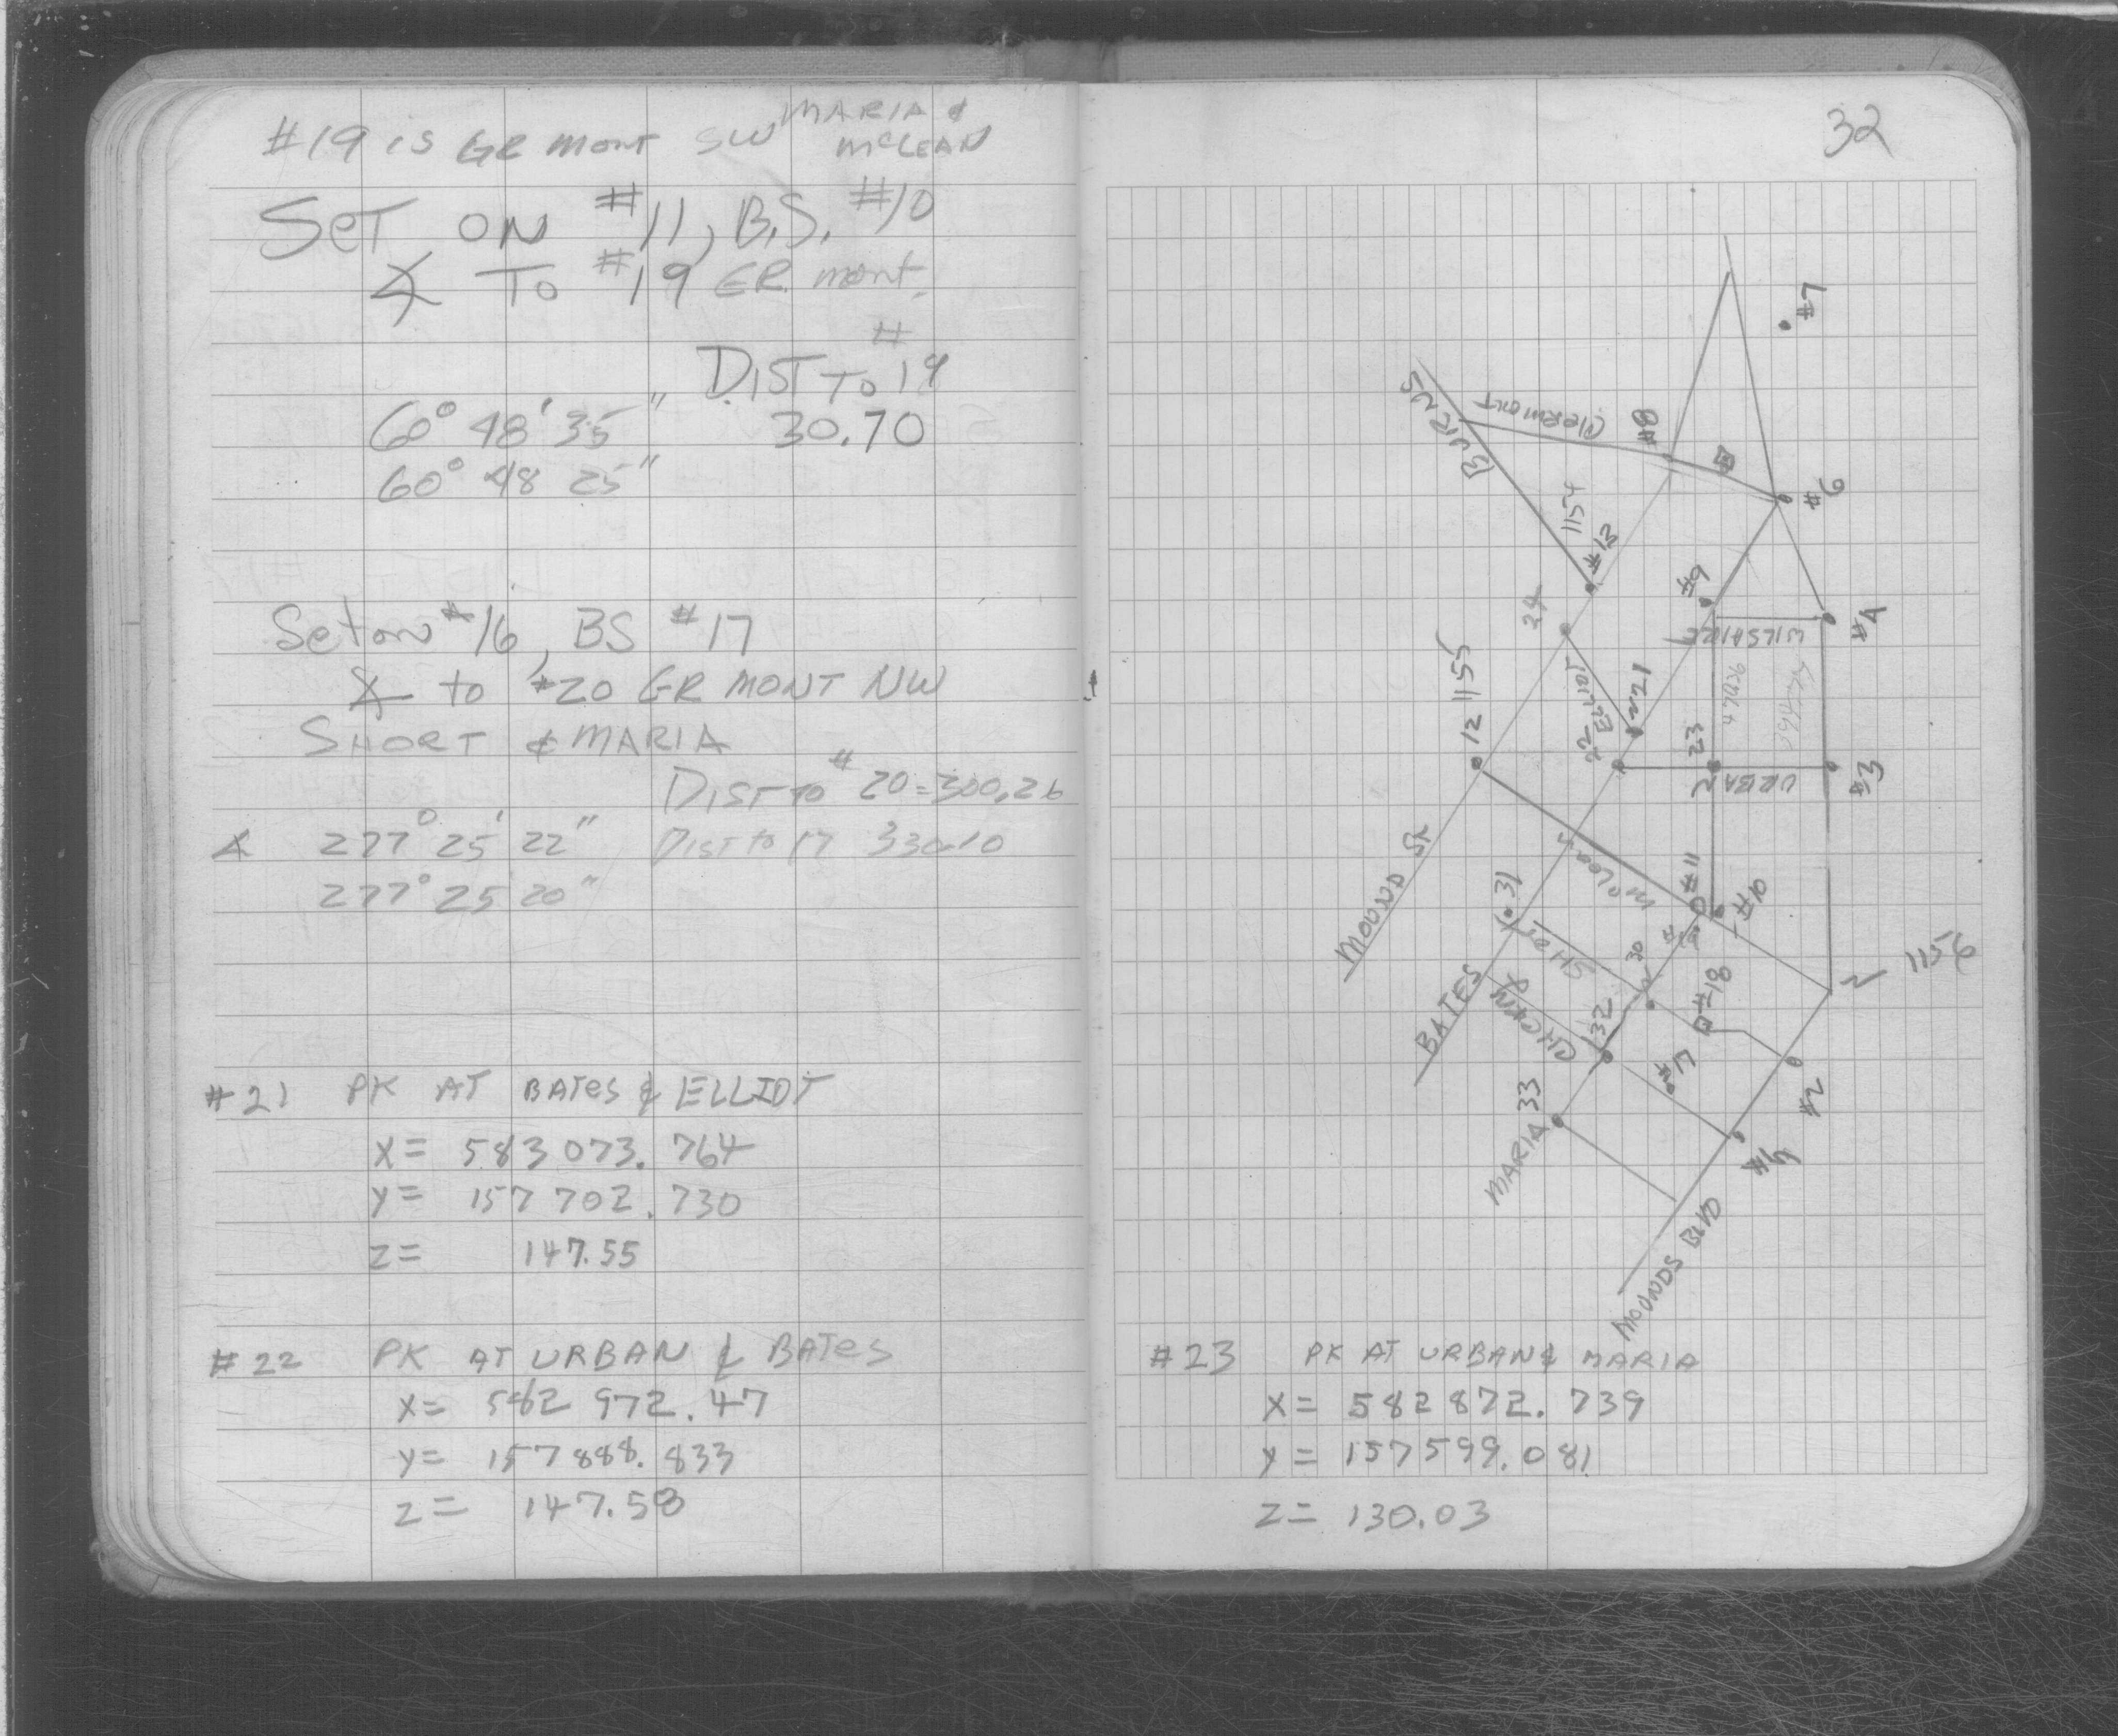 #19 is GR mont SW MARIA &
McLEAN
SET ON #11, B.S. #10
∠ TO #19 GR. mont.
DIST TO #19
60° 48' 35" 30.70
60° 48 25"
Set on #16, BS #17
∠ to #20 GR MONT NW
SHORT & MARIA
DIST TO #20 = 300.26
∠ 277° 25' 22" DIST to 17 330.10
277° 25' 20"
#21 PK AT BATES & ELLIOT
X= 583 073. 764
Y= 157 702. 730
Z= 147.55
#22 PK AT URBAN & BATES
X= 582 972. 47
Y= 157 888. 833
Z= 147.58
32
#7
BURNS
CLERMONT
#8
#6
1154
#13
24
#9
#4
WILSHIRE
12 1155
ELLIOT
21
22
23
URBAN
#3
MOUND ST
McLean
#11
#10
31
SHORT
30
1156
BATES
CHERRY
32
#18
#17
#2
MARIA 33
#16
MOUNDS BLVD
#23 PK AT URBAN & MARIA
X= 582 872. 739
Y= 157 599. 081
Z= 130.03